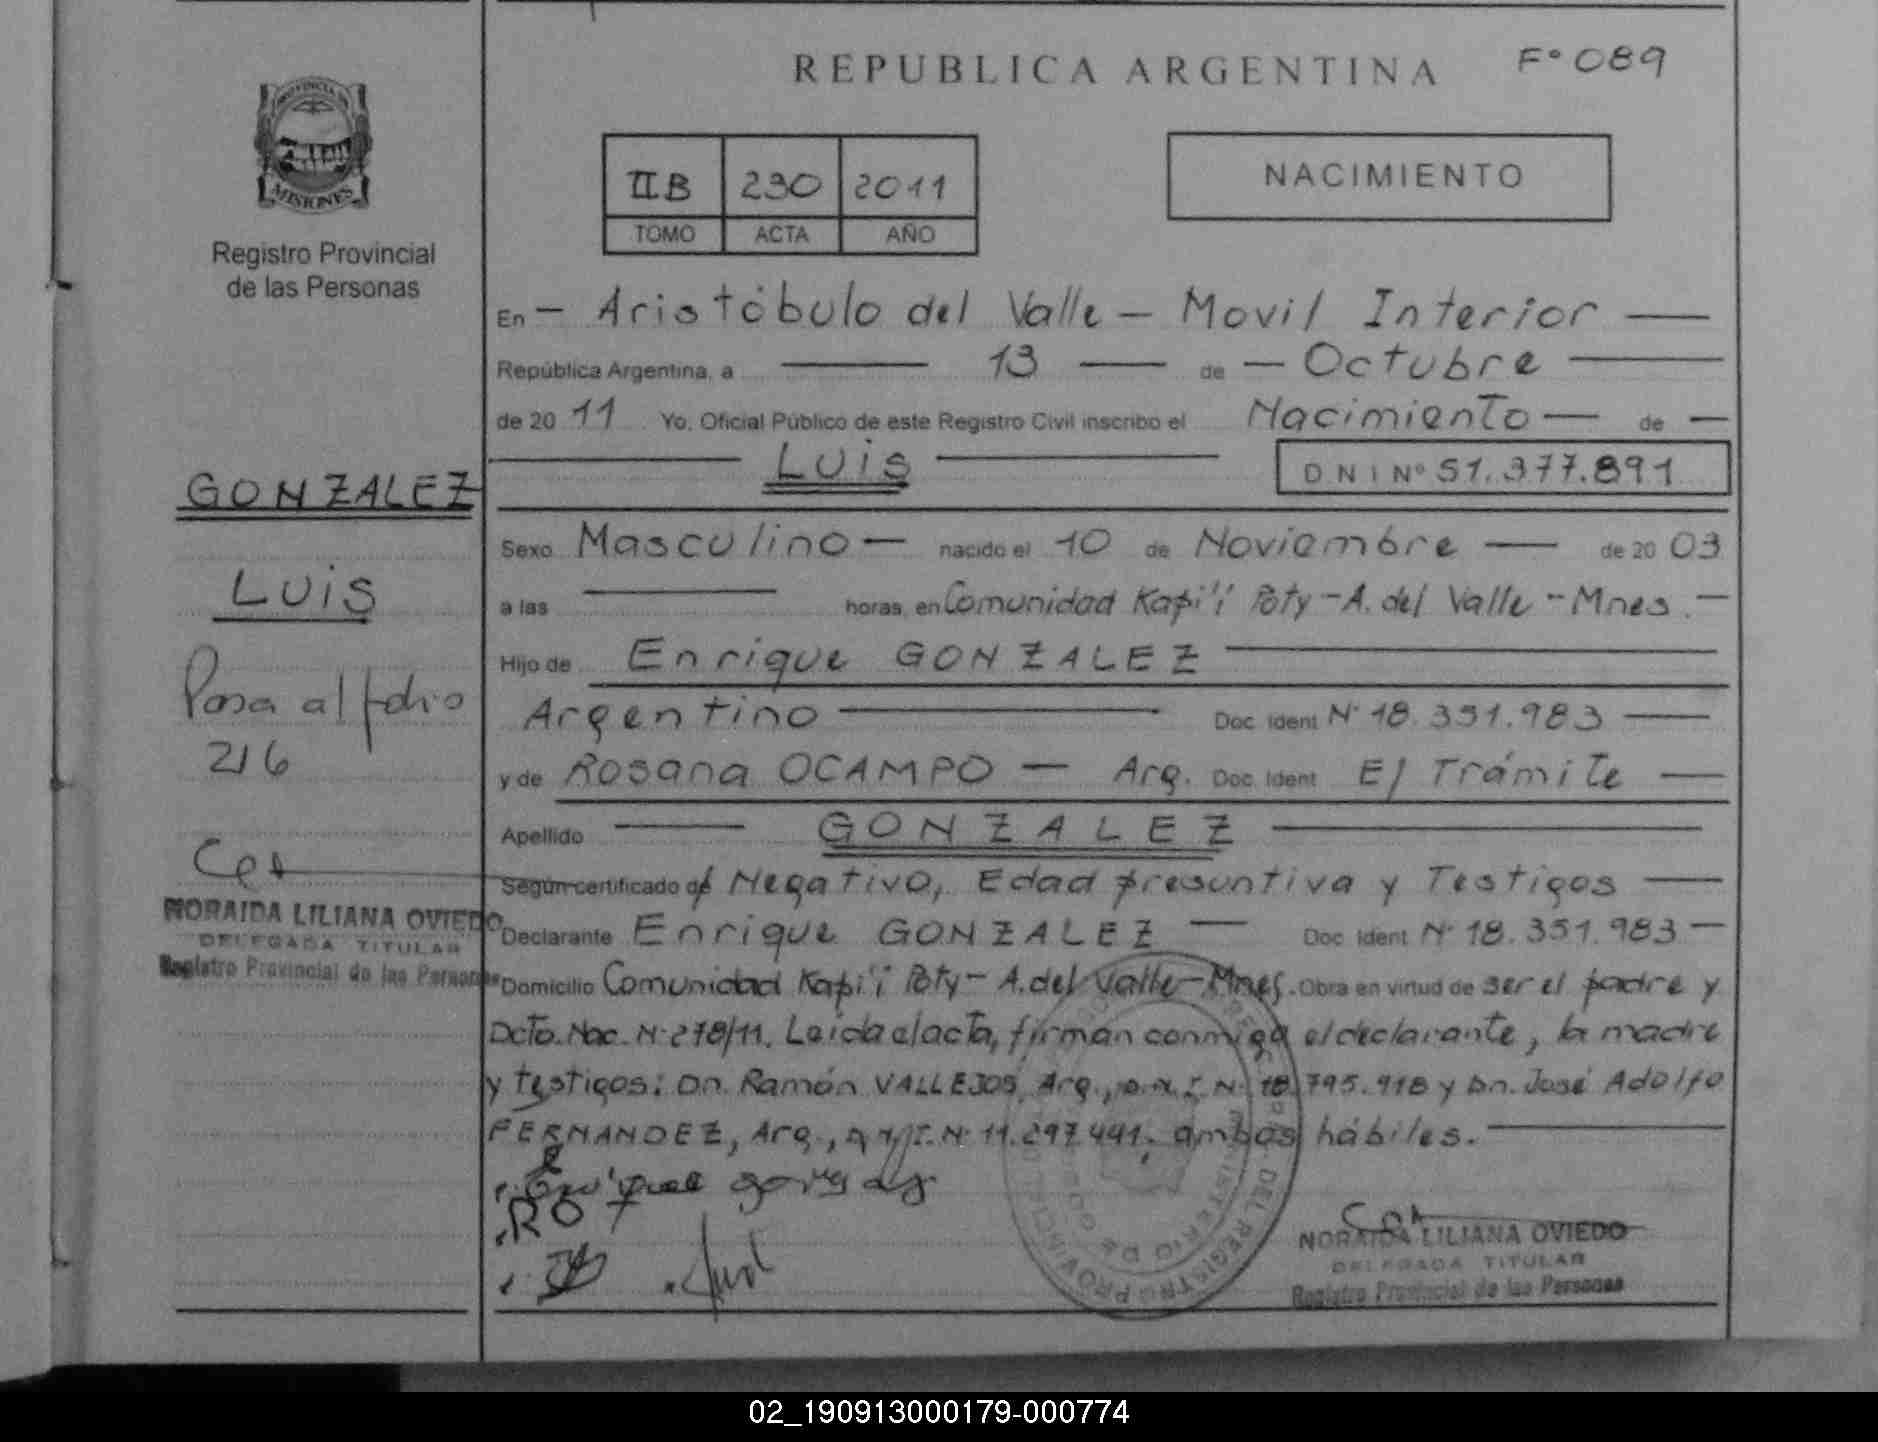 REPUBLICA ARGENTINA
Fº 089
PROVINCIA DE
MISIONES
Registro Provincial
de las Personas
IIB 230 2011
TOMO ACTA AÑO
NACIMIENTO
En — Aristóbulo del Valle — Movil Interior —
República Argentina, a — 13 — de — Octubre —
de 20 11 Yo, Oficial Público de este Registro Civil inscribo el Nacimiento — de —
— LUIS — DNI Nº 51.377.891
GONZALEZ
LUIS
Pasa al folio
216
NORAIDA LILIANA OVIEDO
DELEGADA TITULAR
Registro Provincial de las Personas
Sexo Masculino — nacido el 10 de Noviembre — de 20 03
a las — horas, en Comunidad Kapi'i Poty - A. del Valle - Mnes. —
Hijo de Enrique GONZALEZ —
Argentino — Doc. Ident Nº 18.351.983 —
y de Rosana OCAMPO — Arg. Doc. Ident E/ Trámite —
Apellido — GONZALEZ —
Según certificado de Negativo, Edad presuntiva y Testigos —
Declarante Enrique GONZALEZ — Doc. Ident Nº 18.351.983 —
Domicilio Comunidad Kapi'i Poty - A. del Valle - Mnes. Obra en virtud de ser el padre y
Dcto. Nac. Nº 278/11. Leida el acta, firman conmigo el declarante, la madre
y testigos: Dn. Ramón VALLEJOS, Arg., D.N.I. Nº 18.795.918 y Dn. José Adolfo
FERNANDEZ, Arg., D.N.I. Nº 11.297.441, ambos hábiles. —
Enrique
RO
NORAIDA LILIANA OVIEDO
DELEGADA TITULAR
Registro Provincial de las Personas
02_190913000179-000774